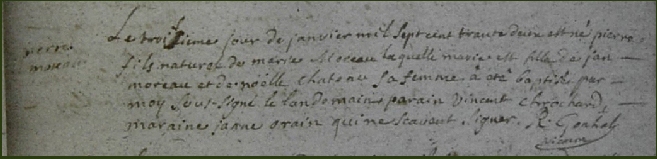 pierre
moreau
Le troisieme jour de janvier mil sept cent trante deux est né pierre
fils naturel de marie Moreau laquelle marie est fille de jan
moreau et de noëlle chatone sa femme a été baptisé par
moy sous signé le landomain parain vincent
maraine janne grain qui ne scavent signer. R.
vicaire